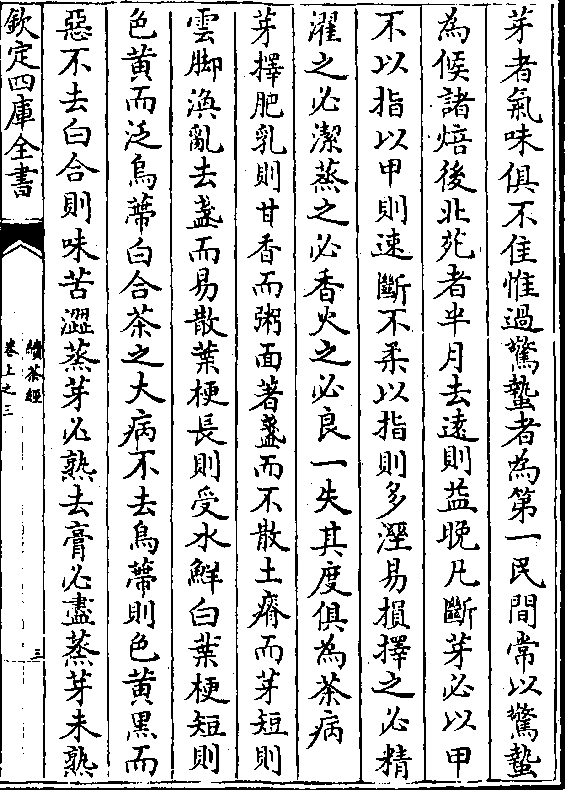 芽者氣味俱不佳惟過驚蟄者為第一民間常以驚蟄
為候諸焙後北苑者半月去遠則益晚凡斷芽必以甲
不以指以甲則速斷不柔以指則多溼易損擇之必精
濯之必潔蒸之必香火之必良一失其度俱為茶病
芽擇肥乳則甘香而粥面著盞而不散土瘠而芽短則
雲脚渙亂去盞而易散葉梗長則受水鮮白葉梗短則
色黄而泛烏蔕白合茶之大病不去烏蔕則色黄黑而
惡不去白合則味苦澀蒸芽必熟去膏必盡蒸芽未熟
欽定四庫全書
續茶經
卷上之三
三